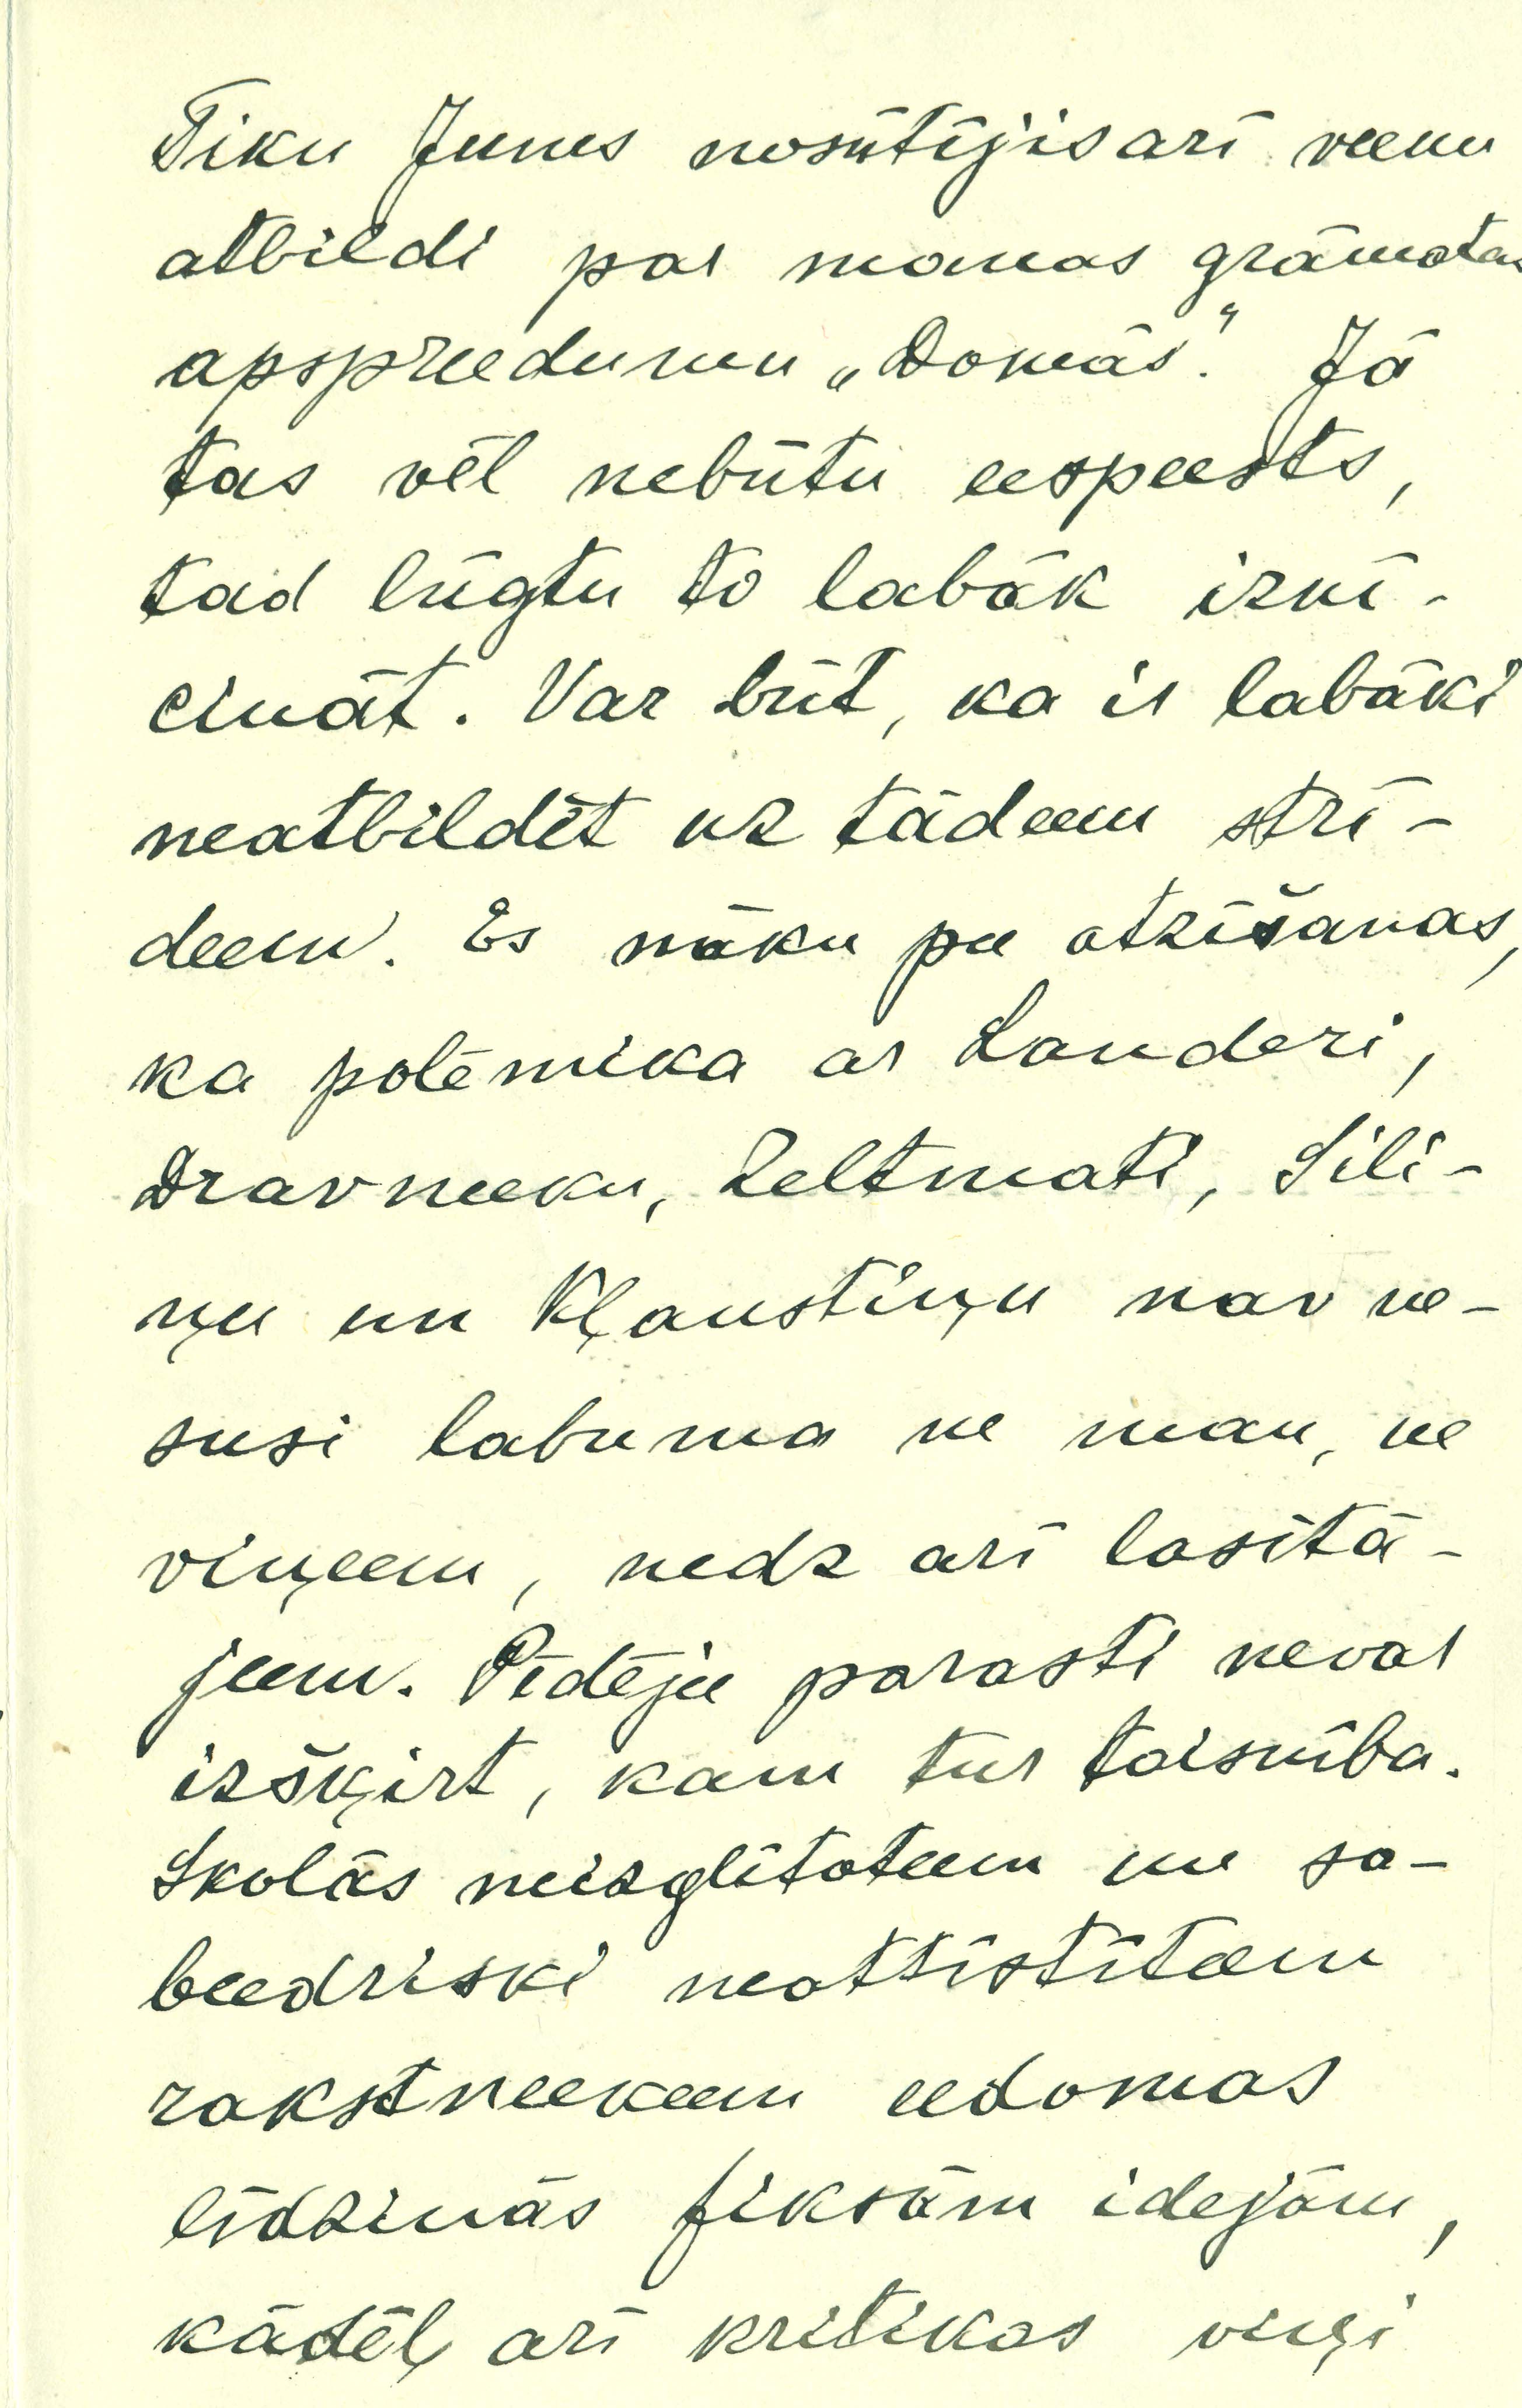 Tiku Jums nosūtījis arī veenu
atbildi par manas grāmatas
apspreedumu „Domās“. Jā
tas vēl nebūtu eespeests,
tad lūgtu to labāk iznī-
cināt. Var būt, ka ir labāki
neatbildēt uz tādeem strī-
deem. Es nāku pee atzīšanas,
ka polēmika ar Landeri,
Dravneeku, Zeltmati, Sili-
ņu un Kļaustiņu nav ne-
susi labuma ne man, ne
viņeem, nedz arī lasītā-
jeem. Pēdējee parasti nevar
izšķirt, kam tur taisnība.
Skolās neizglītoteem un sa-
beedriski neattīstīteem
rakstneekeem eedomas
līdzinās fiksām idejām,
kādēļ arī kritikas viņi